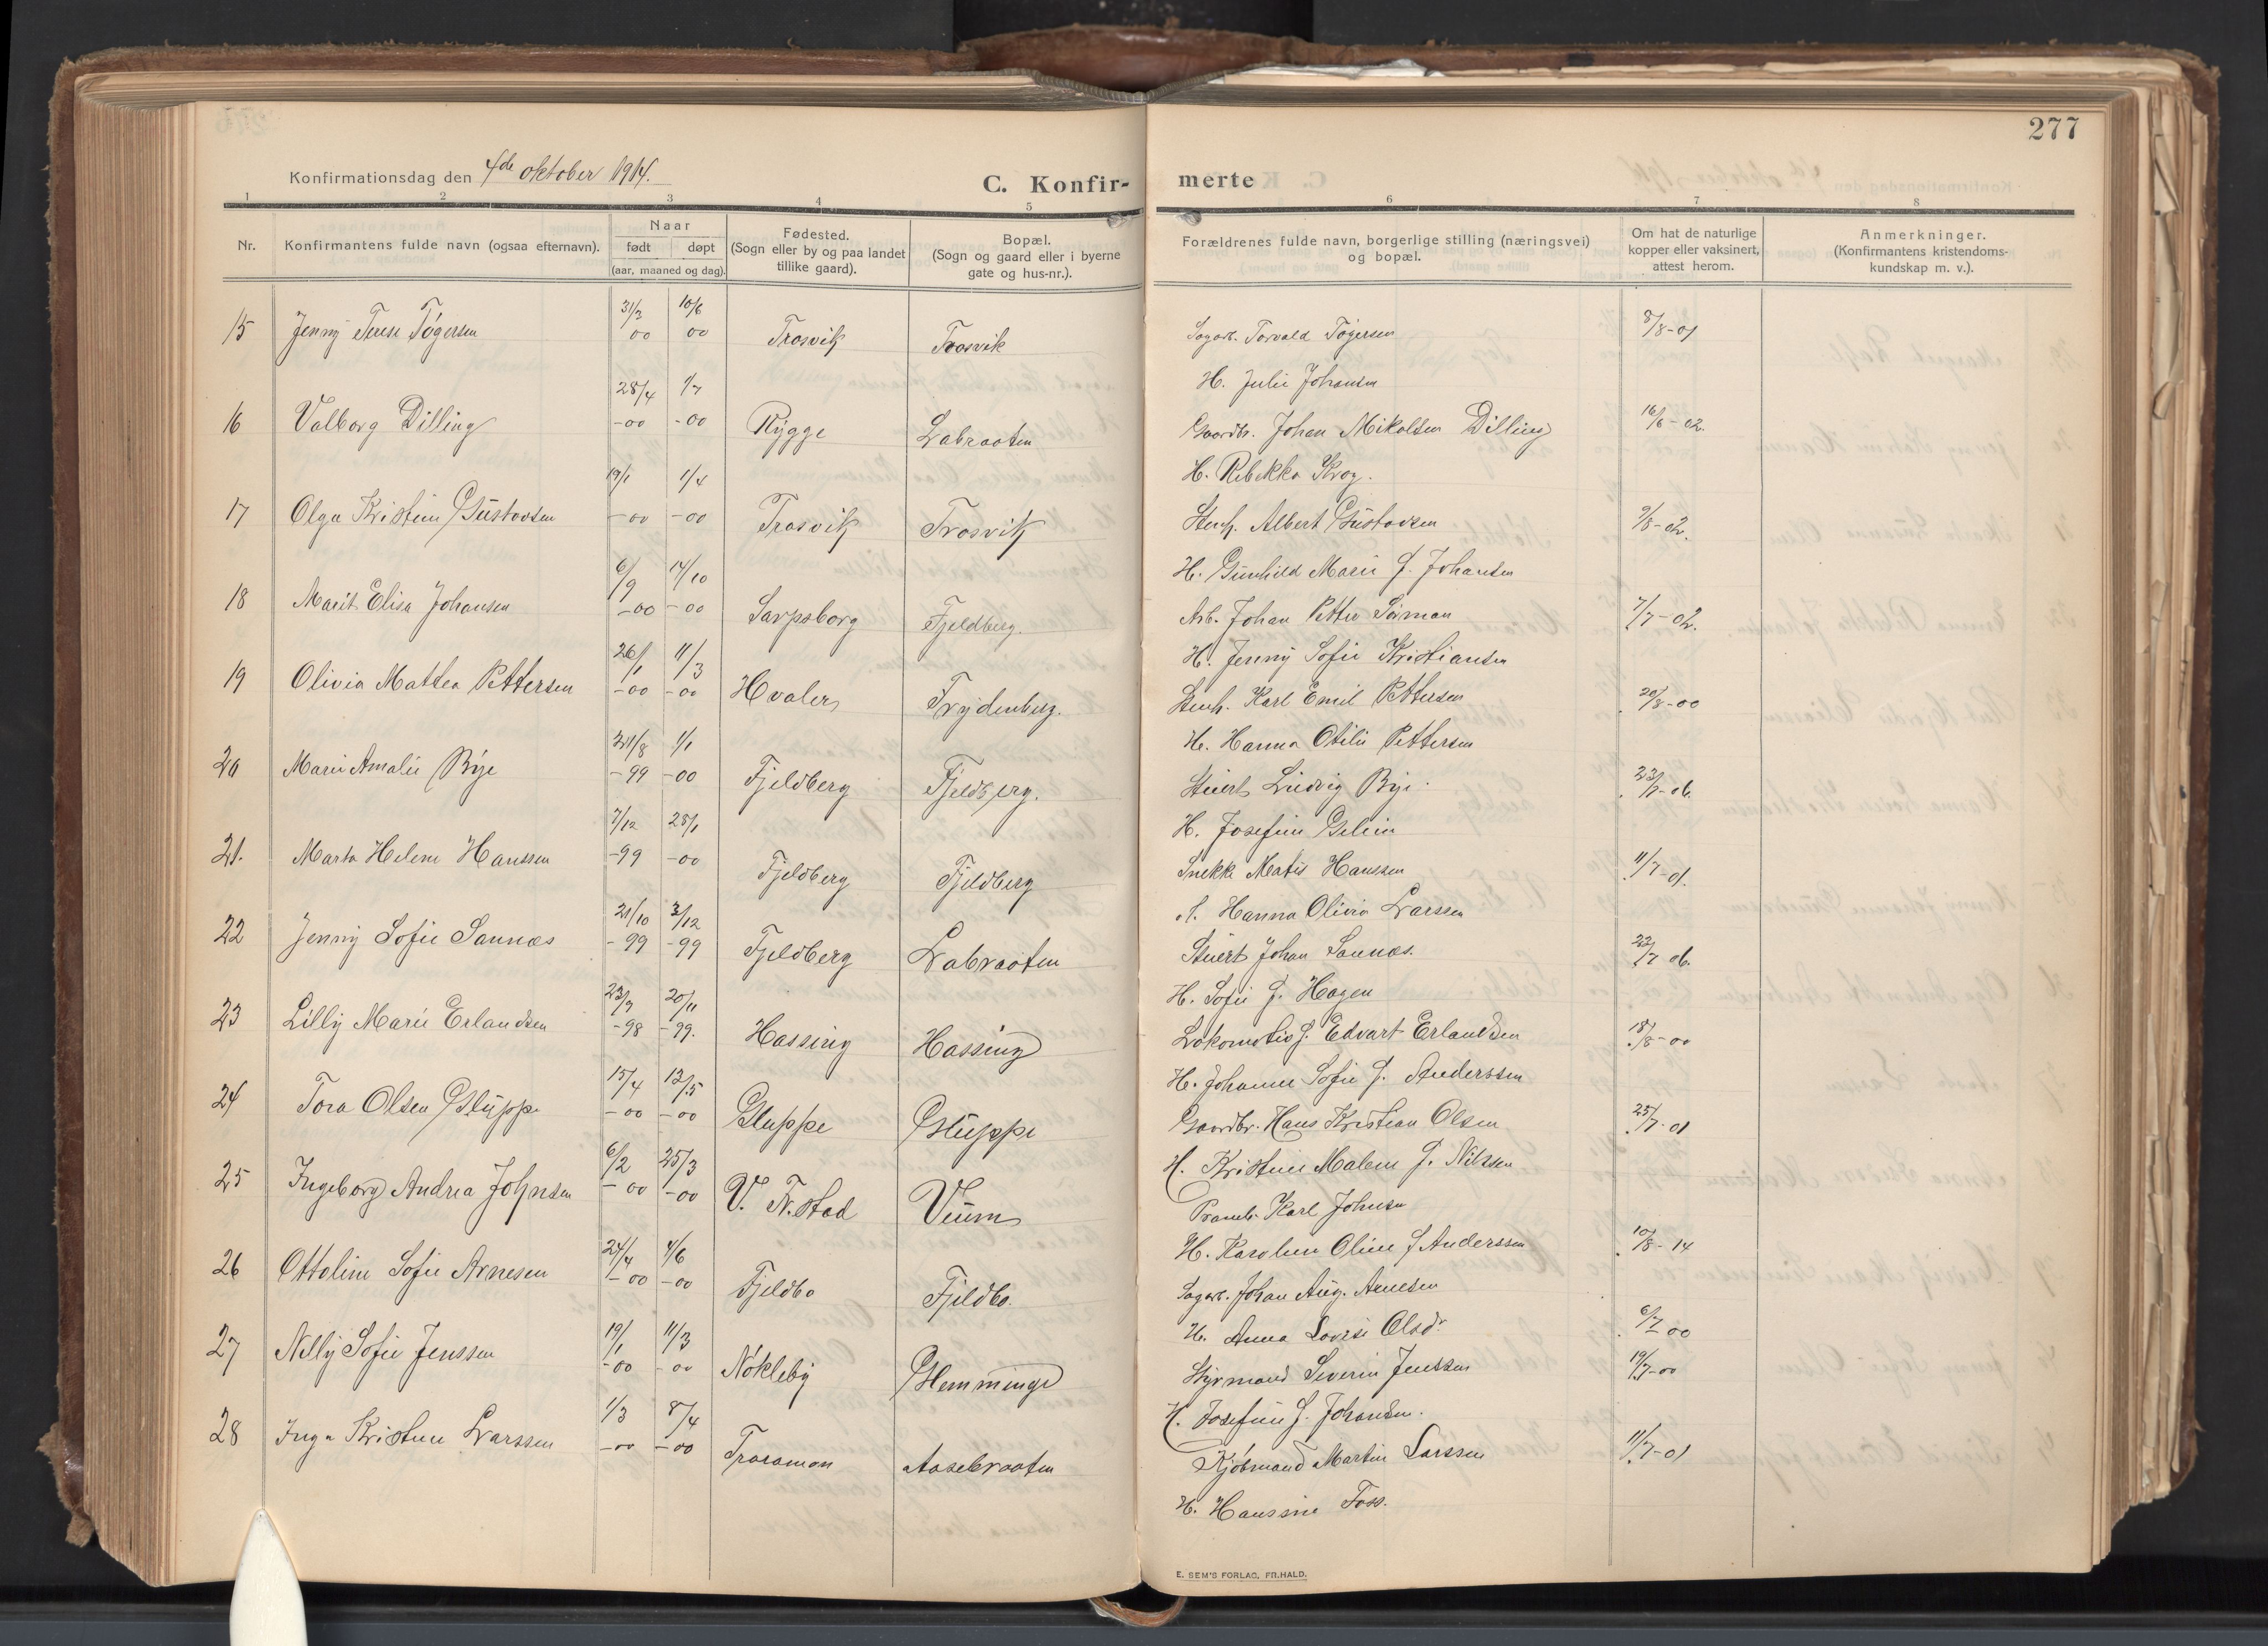 277
Konfirmationsdag den 4de oktober 1914.
C. Konfir-
merte
1 2 3 4 5 6 7 8
Nr. Konfirmantens fulde navn (ogsaa efternavn). Naar født døpt (aar, maaned og dag).
Fødested. (Sogn eller by og paa landet tillike gaard).
Bopæl. (Sogn og gaard eller i byerne gate og hus-nr.).
Forældrenes fulde navn, borgerlige stilling (næringsvei) og bopæl.
Om hat de naturlige kopper eller vaksinert, attest herom.
Anmerkninger. (Konfirmantens kristendoms-kundskap m. v.).
15 Jenny Terese Tøgersen 31/3 00 10/6 00 Trosvik Trosvik Sagarb. Torvald Tøgersen 8/8-01
H. Julie Johansen
16 Valborg Dilling 28/4 -00 1/7 -00 Rygge Labraaten Gaardbr. Johan Mikalsen Dilling 16/6-02.
H. Rebekka Krog.
17 Olga Kristine Gustavsen 19/1 -00 1/4 -00 Trosvik Trosvik Stenh. Albert Gustavsen 9/8-02.
H. Gunhild Marie f. Johansen
18 Marit Elisa Johansen 6/9 -00 14/10 -00 Sarpsborg Fjeldberg. Arb. Johan Petter Sörman 7/7-02.
H. Jenny Sofie Kristiansen
19 Olivia Mattea Pettersen 26/1 -00 11/3 -00 Hvaler Frydenberg. Stenh. Karl Emil Pettersen 20/8-00
H. Hanna Otilie Pettersen
20 Marie Amalie Bye -99 1/1 -00 Fjeldberg Fjeldberg. Stuert Ludvig Bye 23/7-06.
H. Josefine
21. Marta Helene Hanssen 7/12 -99 28/1 -00 Fjeldberg Fjeldberg Snekk. Matis Hanssen 11/7-01.
H. Hanna Olivia Larssen
22 Jenny Sofie Sannæs 21/10 -99 3/12 -99 Fjeldberg Labraaten Stuert Johan Sannæs. 23/7 06.
H. Sofie f. Hagen
23 Lilly Marie Erlandsen -98 20/11 -99. Hassing Hassing Lokomotivf. Edvart Erlandsen 18/8-00
H. Johanne Sofie f. Anderssen
24 Tora Olsen Gluppe 15/4 -00 13/5 -00 Gluppe Gluppe Gaardbr. Hans Kristian Olsen 25/7-01
H. Kristine Malene f. Nilssen
25 Ingeborg Andrea Johnsen 6/2 -00 25/3 -00 V. Fr.stad Veum Karl Johnsen
H. Karoline Oline f Anderssen 10/8-14
26 Ottoline Sofie Arnesen 24/4 -00 4/6 -00 Fjeldbo Fjeldbo. Sagarb. Johan Aug. Arnesen
H. Anna Lovise Olsd. 6/7 00
27 Nelly Sofie Jenssen 19/1 -00 11/3 -00 Nökleby Glemminge Styrmand Severin Jenssen 19/7-00
H. Josefine f. Johansen.
28 Inga Kristine Larssen 1/3 -00 8/4 -00 Traramen Aasebraaten Kjöbmand Martin Larssen 11/7-01
H. Hansine Foss.
E. SEM'S FORLAG, FR.HALD.